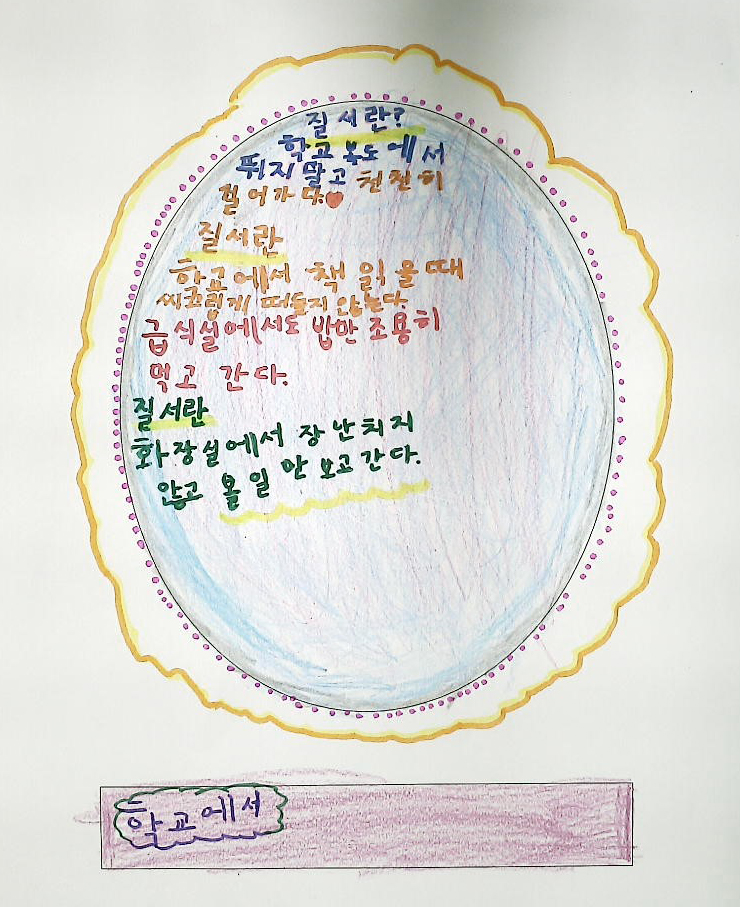 질서란?
학교 복도에서
뛰지 말고 천천히
걸어가다.
질서란
학교에서 책 읽을때
씨끄럽게 떠들지 않는다.
급식실에서도 밥만 조용히
먹고 간다.
질서란
화장실에서 장난치지
않고 볼일만 보고간다.
학교에서